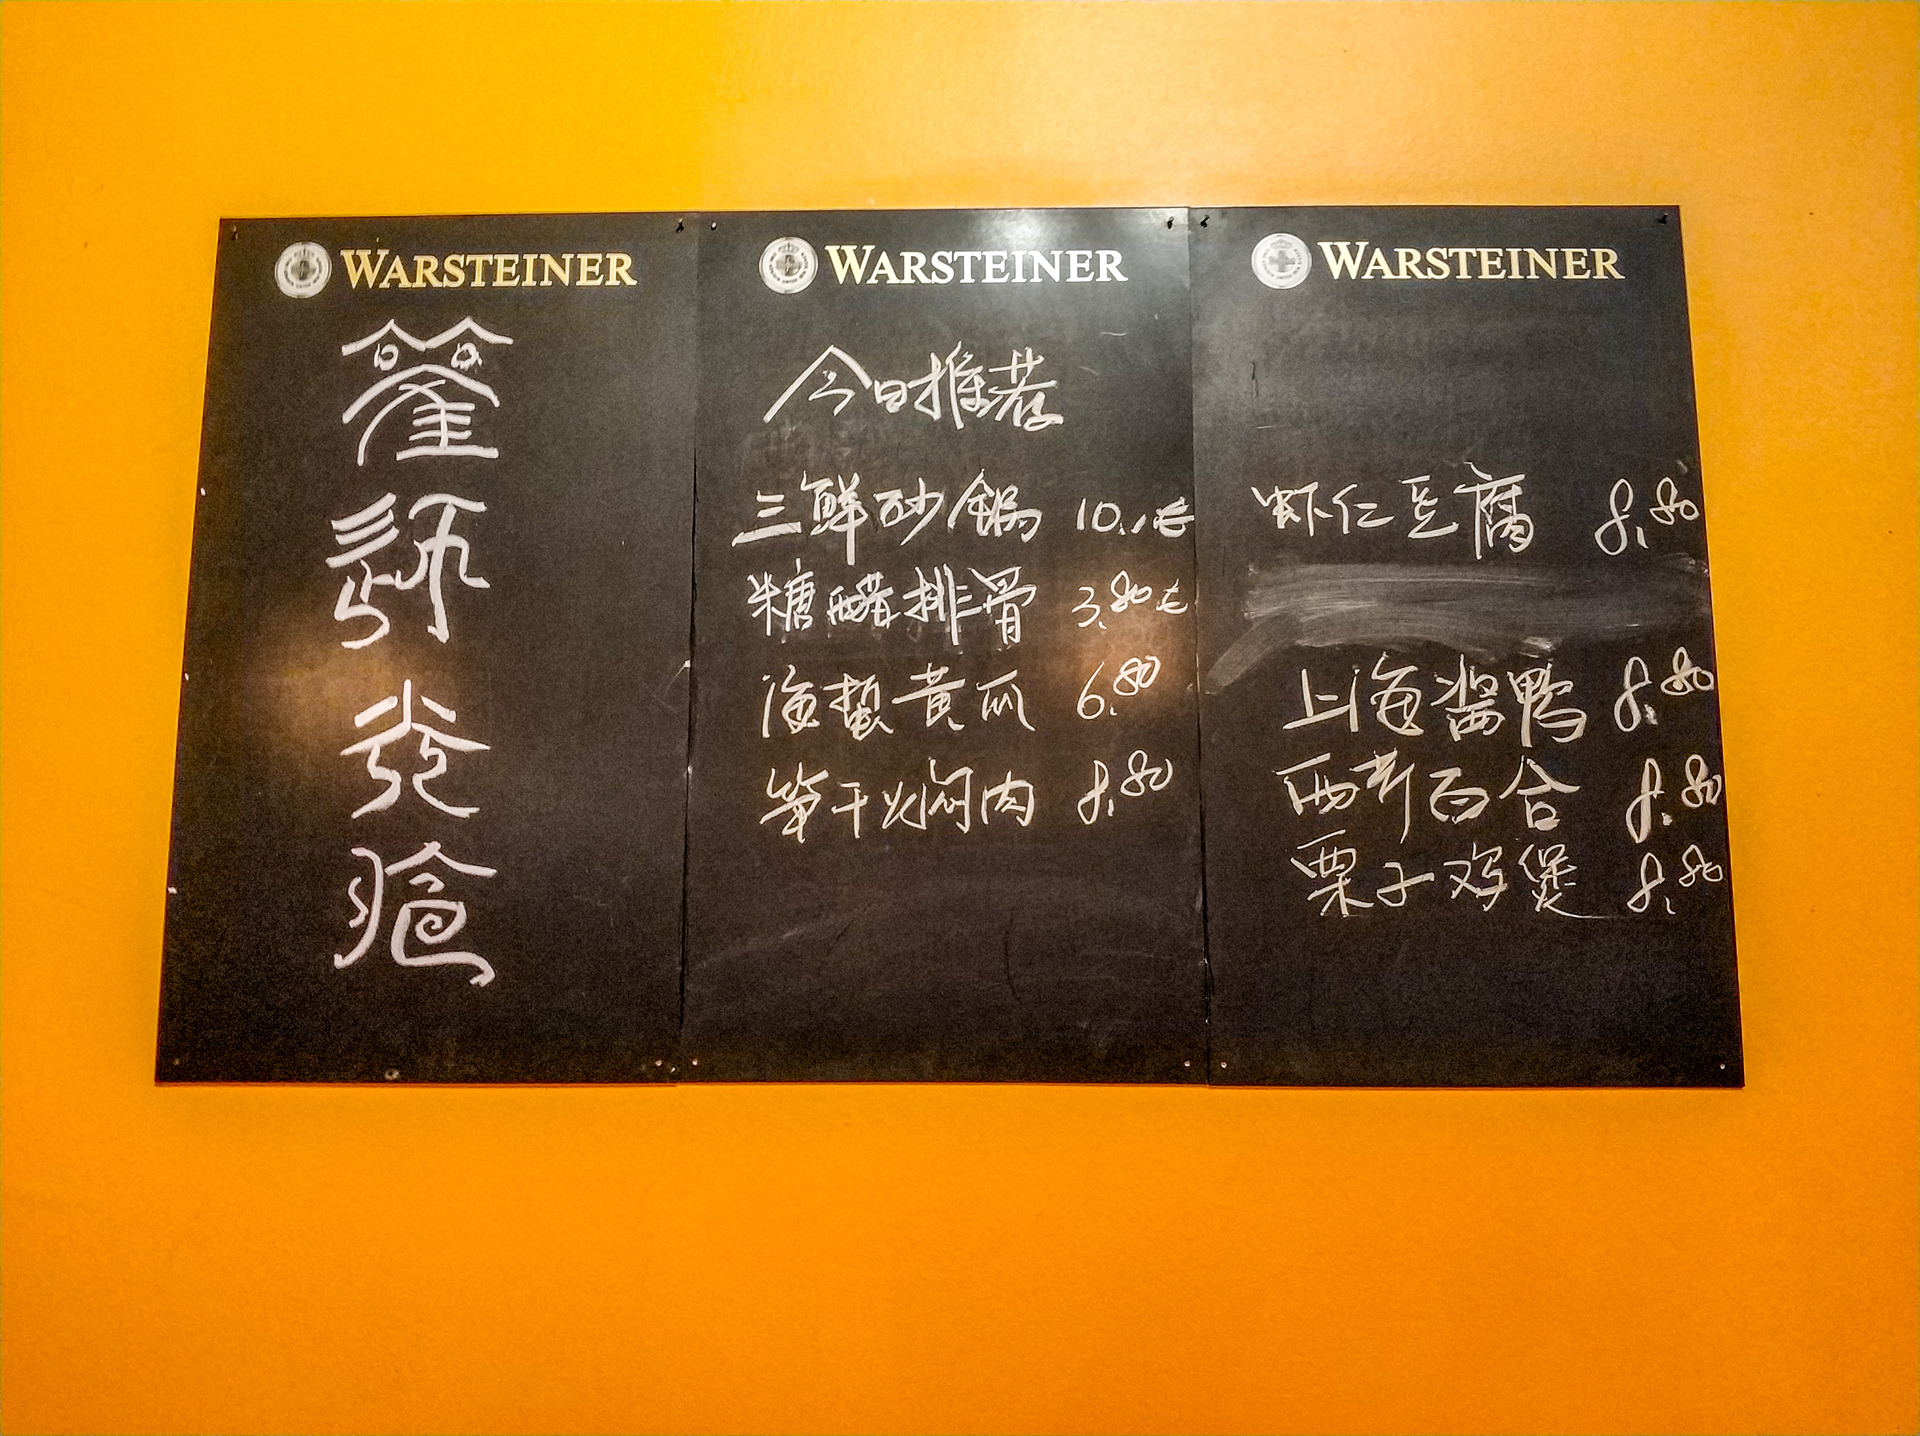 WARSTEINER
WARSTEINER
今日推荐
三鲜砂锅 10.-€
糖醋排骨 3.80€
海蜇黄瓜 6.80
笋干焖肉 8.80
WARSTEINER
虾仁豆腐 8.80
上海酱鸭 8.80
西芹百合 8.80
栗子鸡煲 8.80